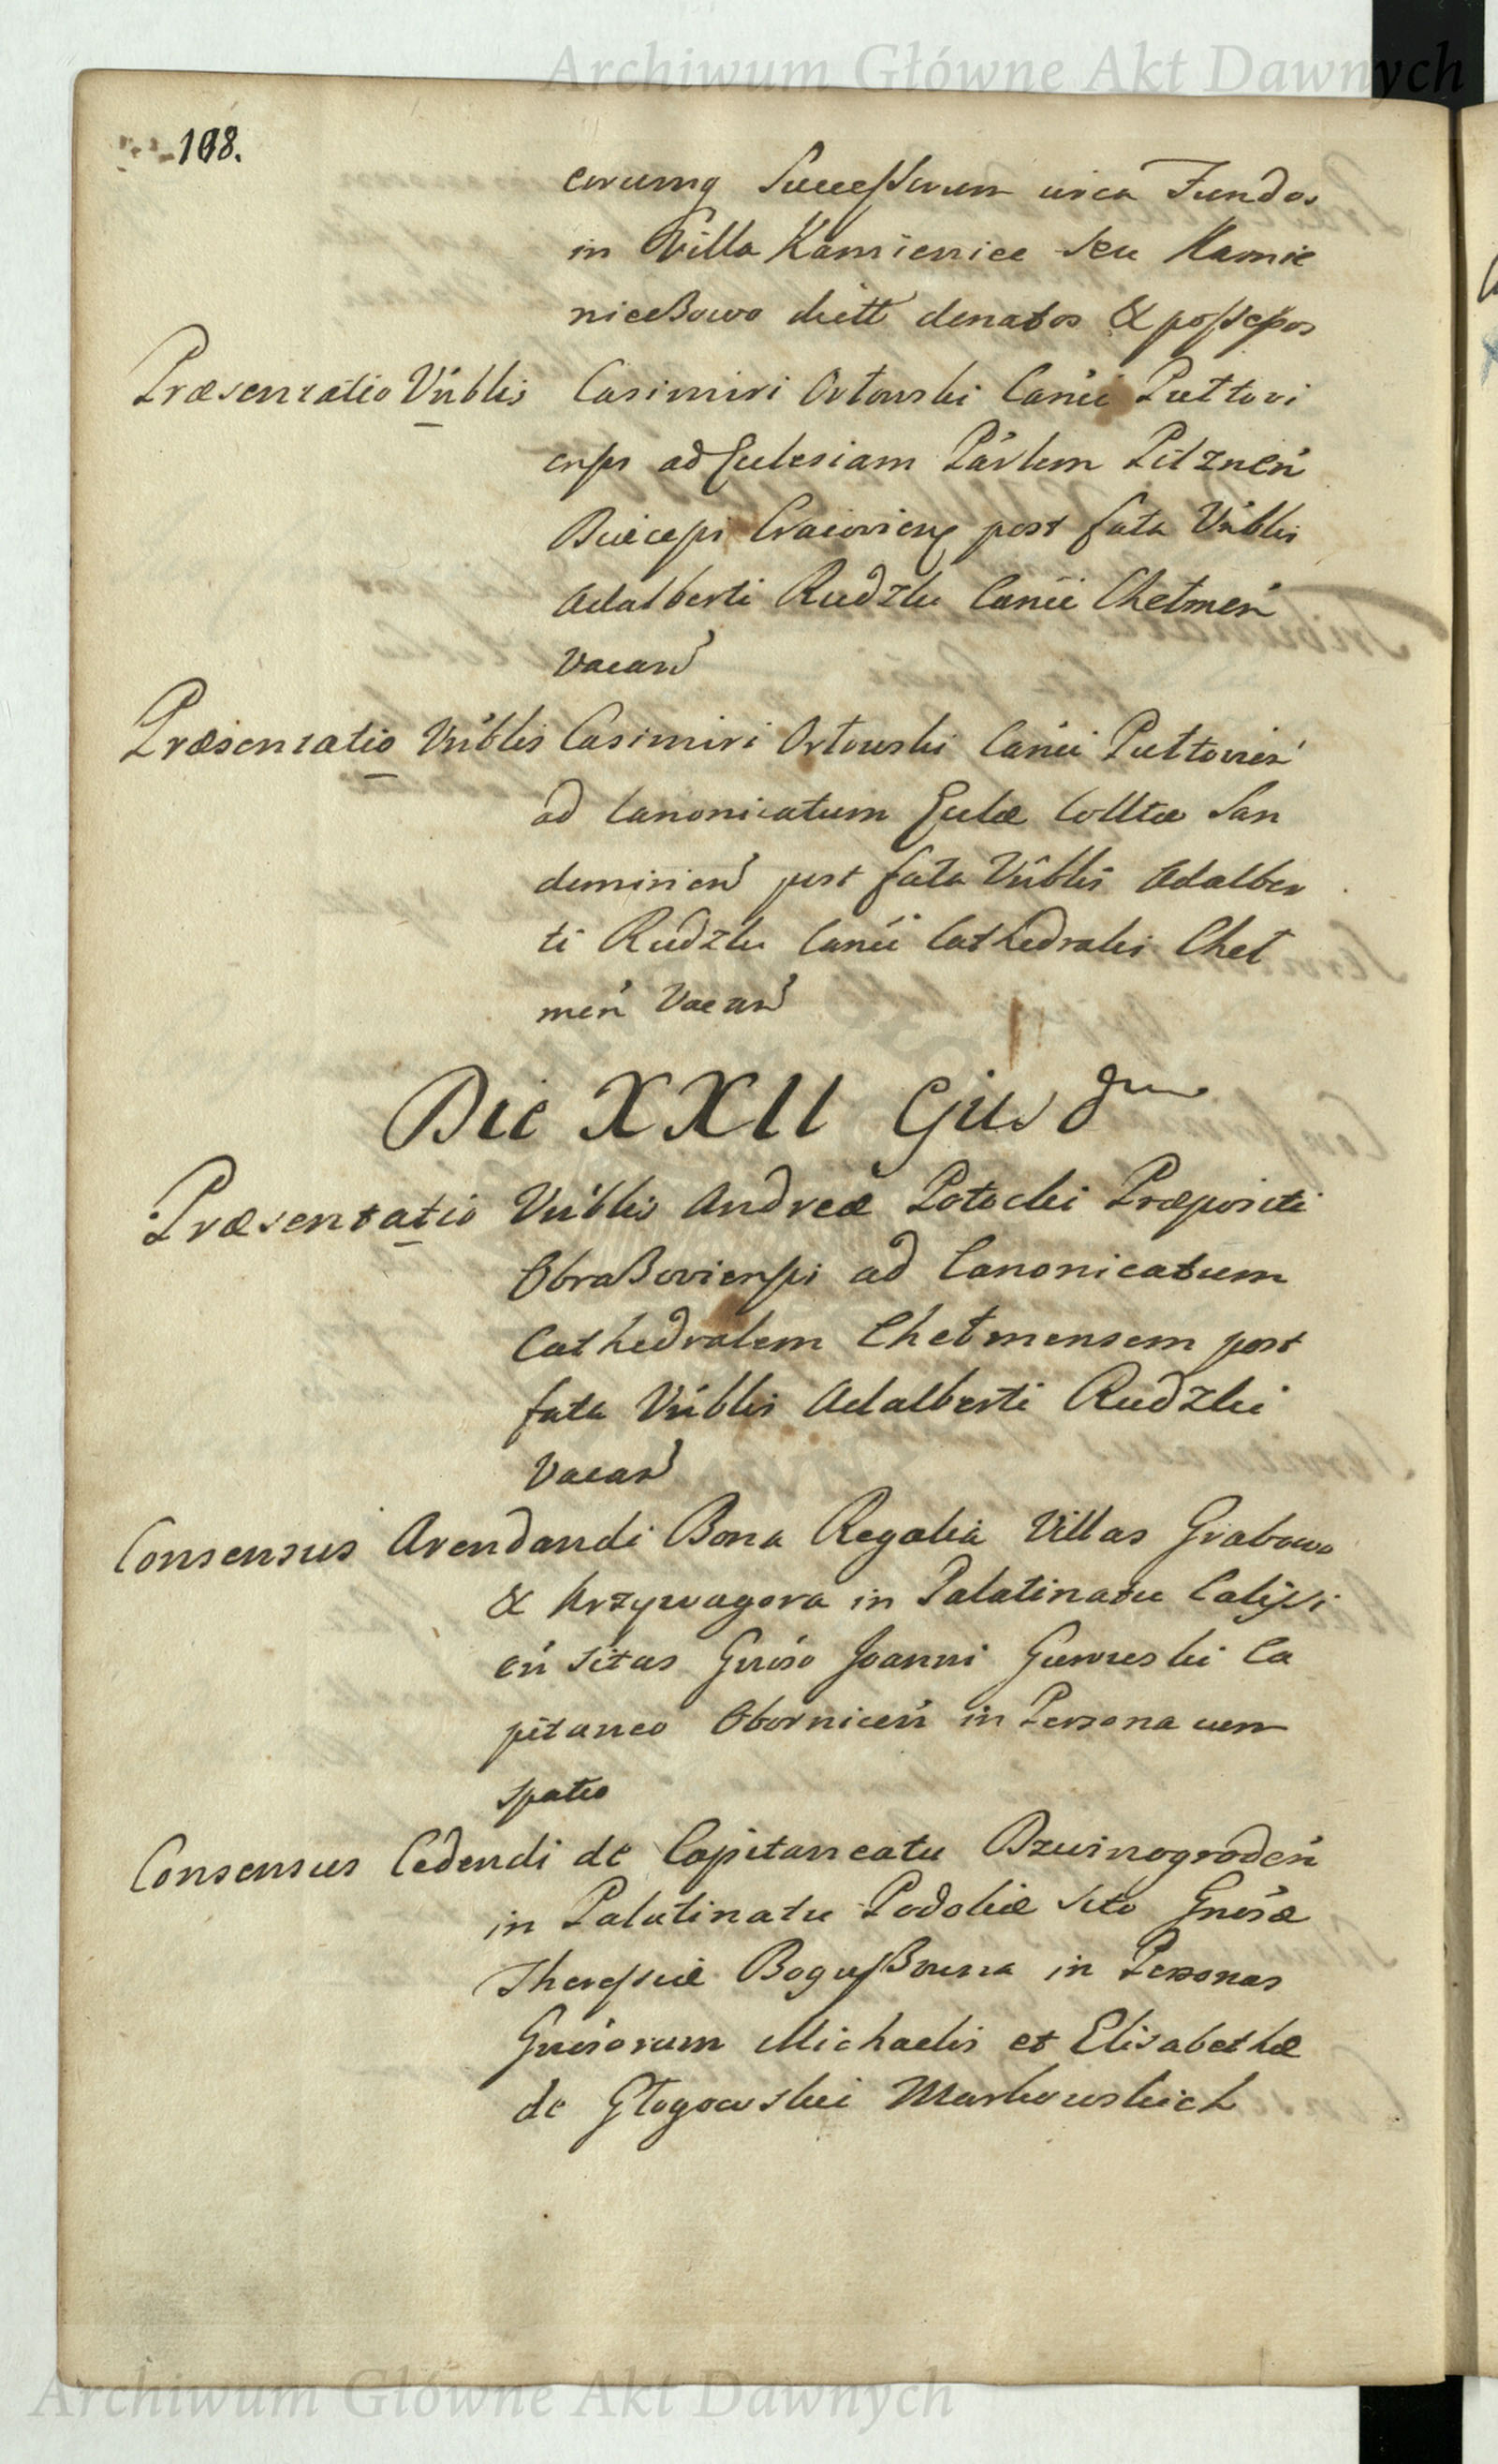 Archiwum Główne Akt Dawnych
108.
eorumq Successorum circa Fundos
in Villa Kamienice seu Kamie
niceßowo dictt denatos & possessos
Præsentatio Vnblis Casimiri Orłowski Canci Pułtovi
ensis ad Ecclesiam Pârlem Pilznen̄
Diæcesis Cracovien post fata Vnblis
Adalberti Rudzki Canci Chełmen̄
Vacan̄
Præsentatio Vnblis Casimiri Orłowski Canci Pułtovien̄
ad Canonicatum Ecclæ Colltæ San
domirien̄ post fata Vnblis Adalber
ti Rudzki Canci Cathedralis Cheł
men̄ Vacan̄
Die XXII Ejusdem
Præsentatio Vnblis Andreæ Potocki Præpositi
Obraßoviensis ad Canonicatum
Cathedralem Chełmensem post
fata Vnblis Adalberti Rudzki
Vacan̄
Consensus Arendandi Bona Regalia Villas Grabowo
& Krzywagora in Palatinatu Calissi
en̄ sitas Gnoso Joanni Gurowski Ca
pitaneo Obornicen̄ in Persona cum
spatio
Consensus Cedendi de Capitaneatu Dzwinogroden̄
in Palatinatu Podoliæ sito Gnosæ
Theressiæ Bogußowna in Personas
Gnosorum Michaelis et Elisabethæ
de Głogowskie Markowskich
Archiwum Główne Akt Dawnych